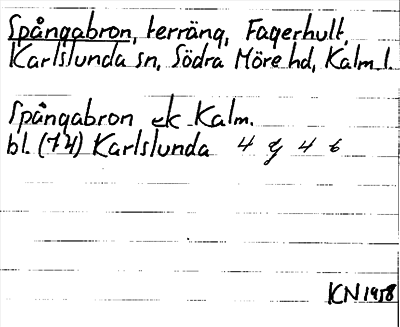 Spångabron, terräng, Fagerhult,
Karlslunda sn, Södra Möre hd, Kalm l.
Spångabron ek Kalm.
bl. (74) Karlslunda 4 g 4 b
KN 1958